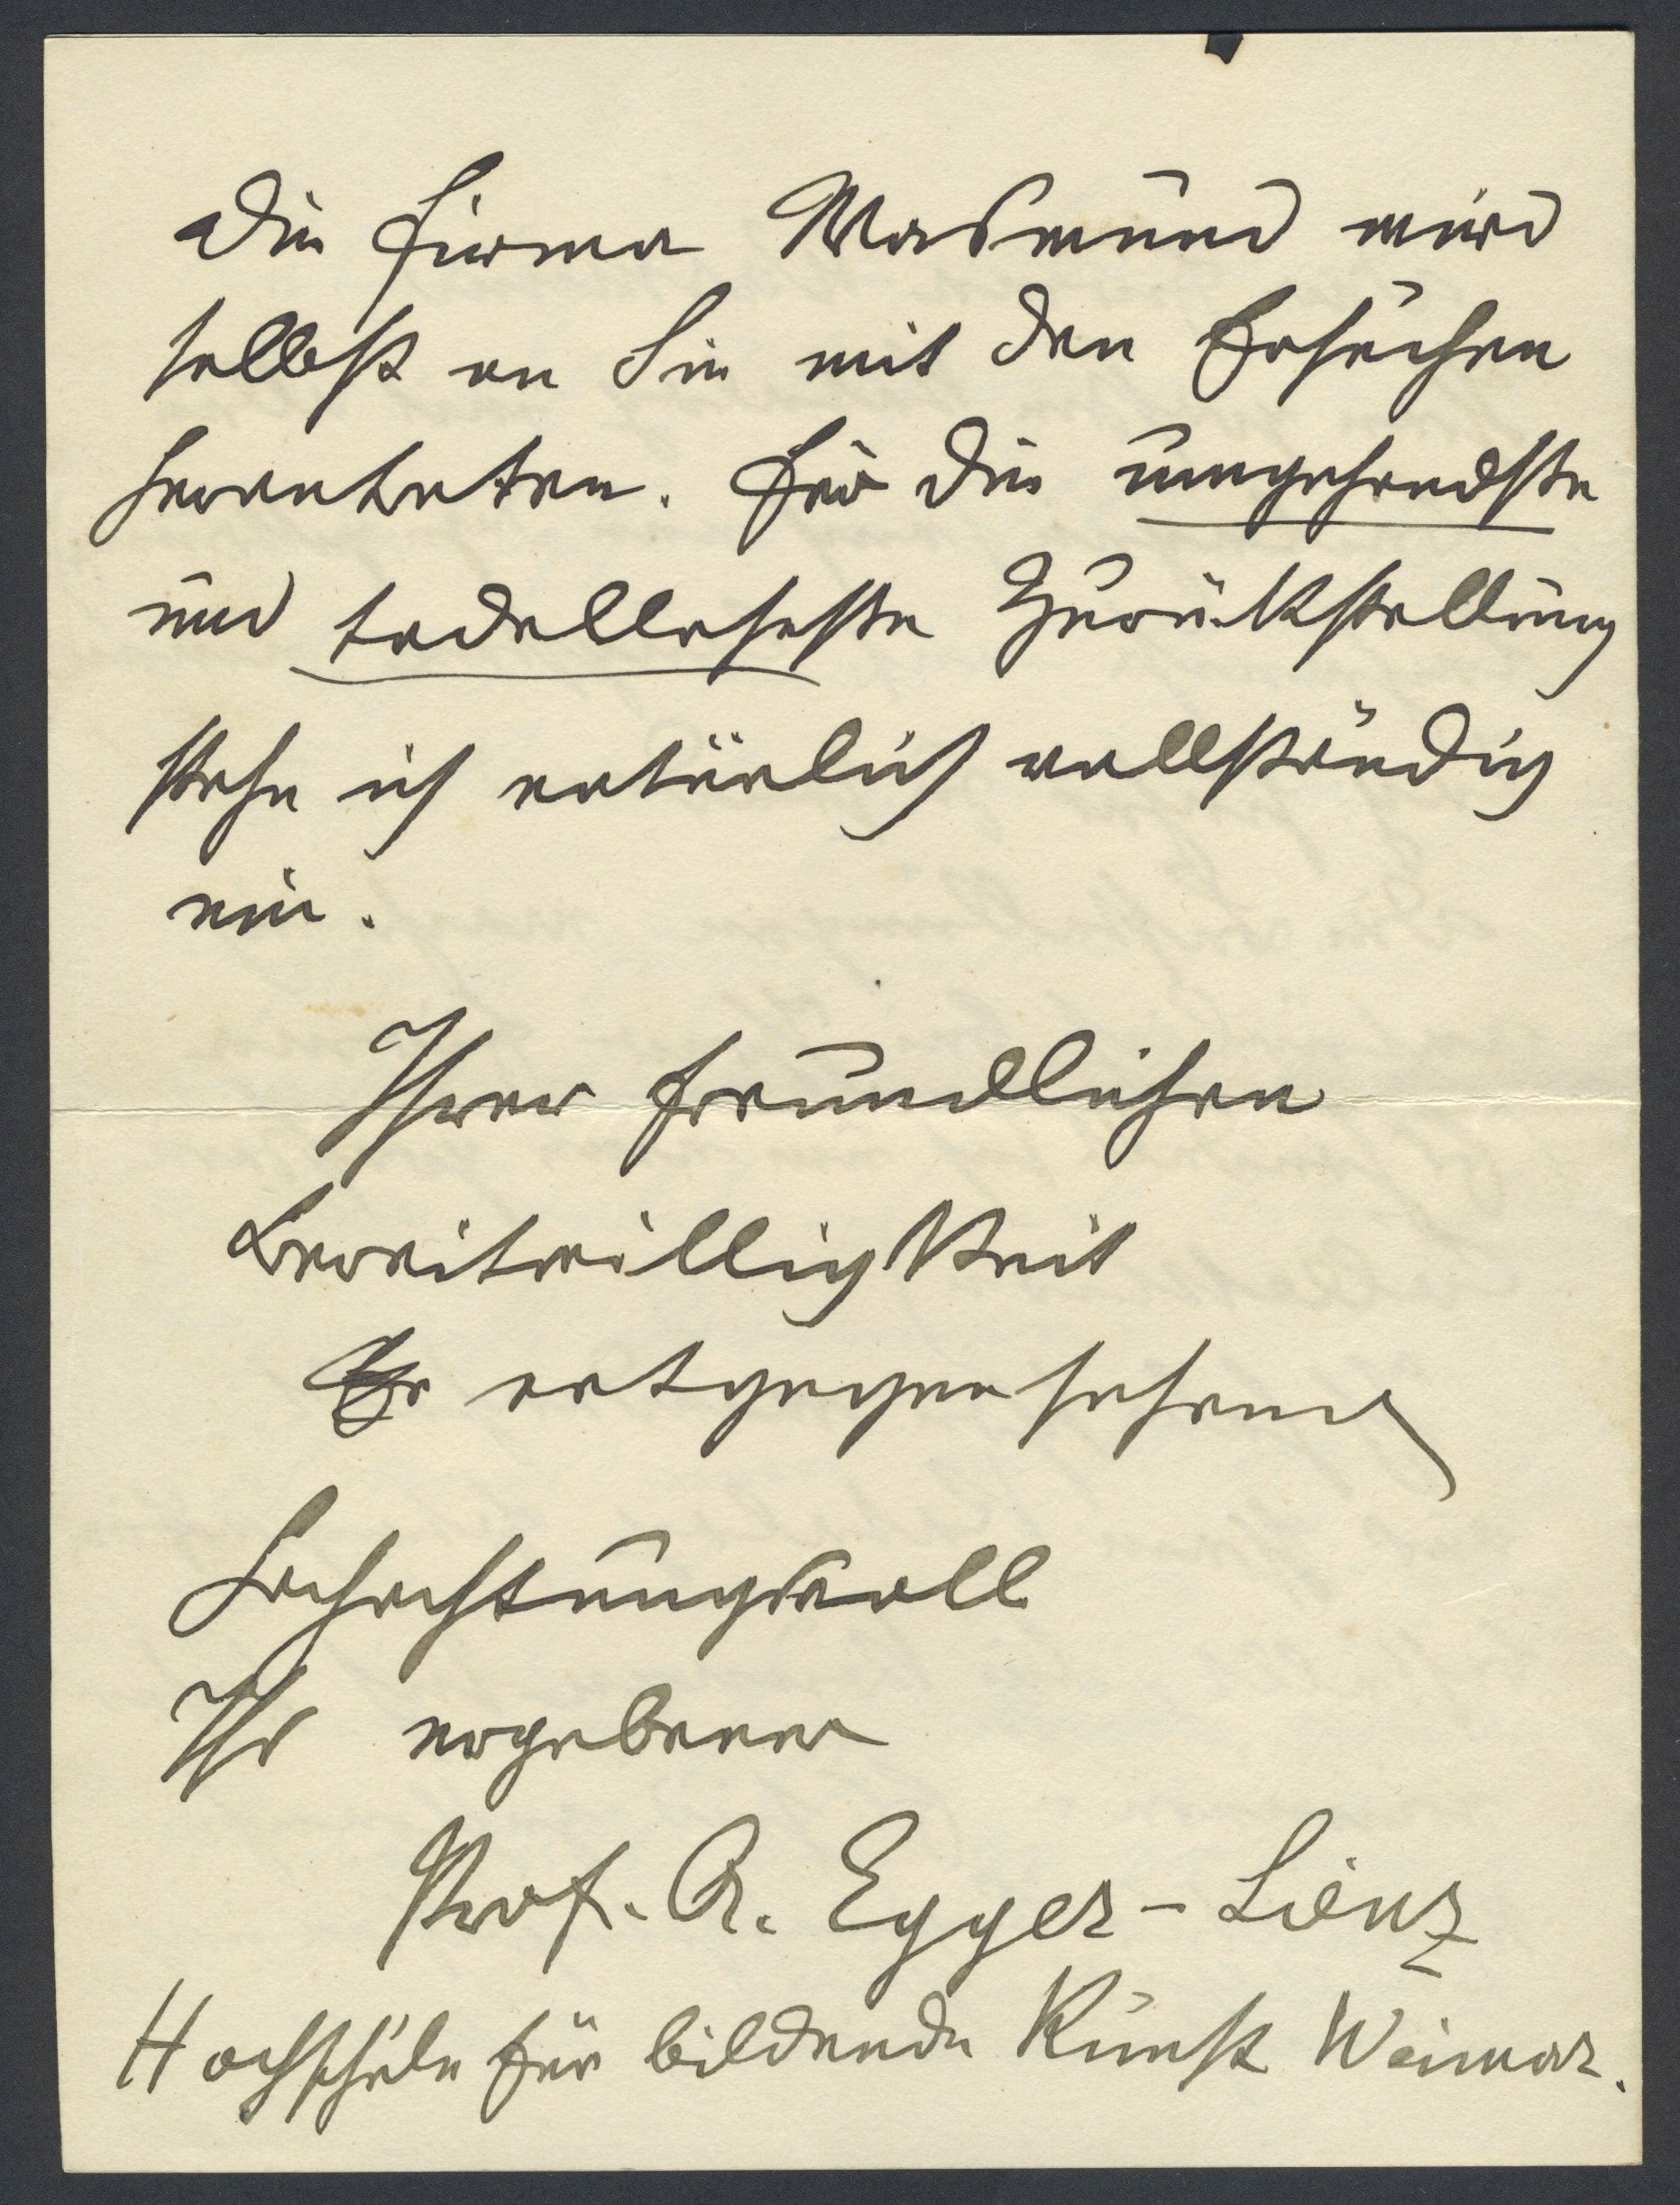 Die Firma Wasmund wird
selbst an Sie mit den Ersuchen
herantreten. Für die umgehendste
und tadelloseste Zurückstellung
stehe ich natürlich vollständig
ein.
Ihrer freundlichen
Bereitwilligkeit
entgegensehend
Hochachtungsvoll
Ihr ergebener
Prof. A. Egger-Lienz
Hochschule für bildende Kunst Weimar.